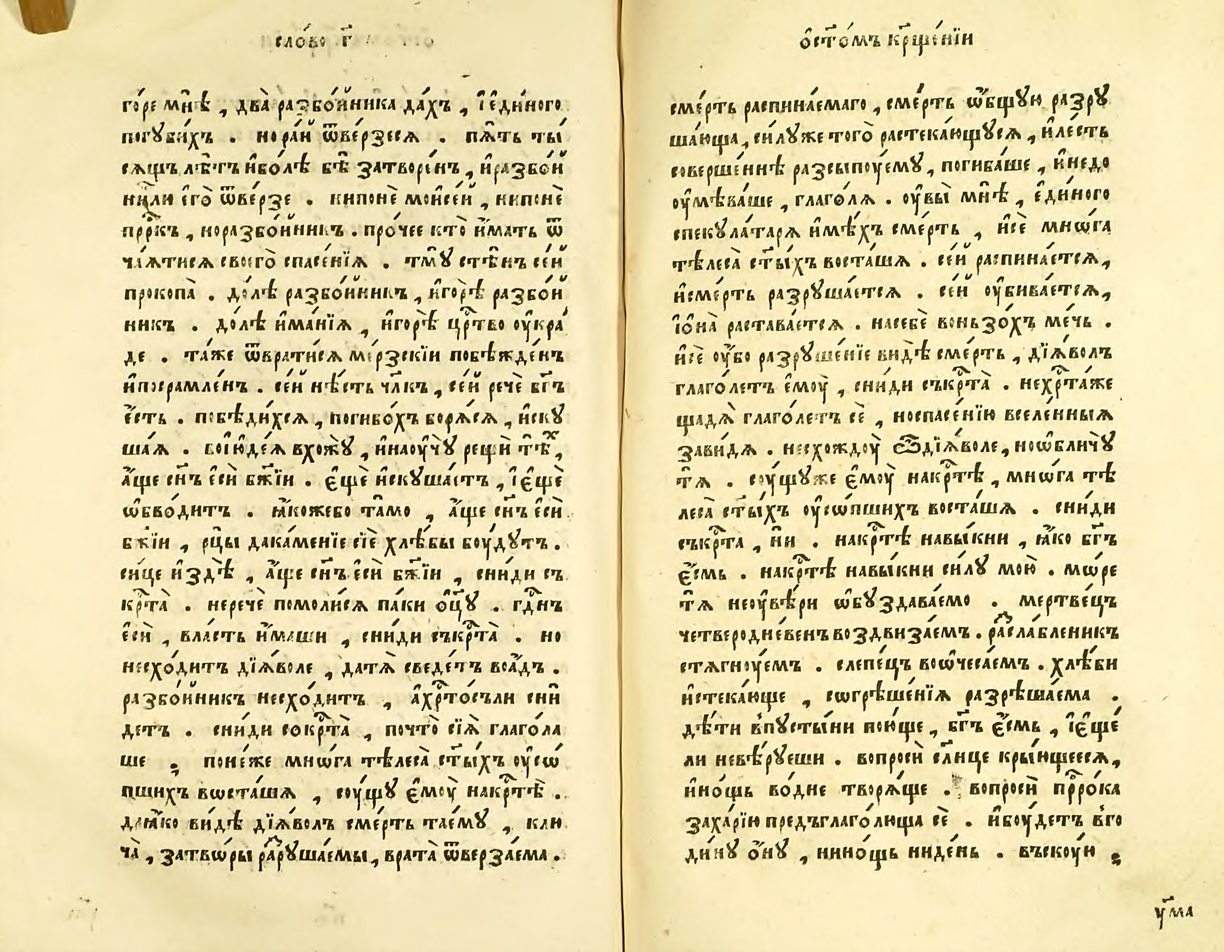 сло́во г҃
го́ре мнѣ̀ , два̀ разбо́йника да́хъ , і҆еди́ного
погꙋби́хъ . но ра́й ѿве́рзесѧ . пѧ́ть ты́
сѧщъ лѣ́тъ и҆бо́лѣ бѣ̀ затворе́нъ , и҆разбо́й
ни́цы его̀ ѿве́рзе . ни понѐ моисе́й , ни понѐ
прⷪ҇ро́къ , но разбо́йникъ . про́чее кто̀ и҆́мать ѿ
ча́ѧтисѧ своего̀ спасе́нїѧ . тмꙋ̀ стѣ́нъ се́й
прокопа̀ . до́лѣ разбо́йникъ , и҆го́рѣ разбо́й
никъ . до́лѣ и҆ма́нїѧ , и҆го́рѣ црⷭ҇тво оу҆кра́
де . та́же ѿврати́сѧ ме́рзскїй побѣжде́нъ
и҆посрамле́нъ . се́й нѣ́сть чл҃къ , се́й речѐ бг҃ъ
є҆́сть . побѣди́хсѧ , погибо́хъ борѧ́сѧ , и҆скꙋ
ша́ѧ . во і҆ꙋде́ѧ вхо́жꙋ , и҆наоу҆чꙋ̀ рещѝ тѣ́х ,
а҆́ще сн҃ъ є҆сѝ бж҃їй . є҆щѐ и҆скꙋша́етъ , і҆є҆щѐ
ѡ҆бво́дитъ . ꙗ҆́коже бо та́мо , а҆́ще сн҃ъ є҆сѝ
бж҃їй , рцы̀ да ка́менїе сїѐ хлѣ́бы бꙋ́дꙋтъ .
си́це и҆здѣ̀ , а҆́ще сн҃ъ є҆сѝ бж҃їй , сни́ди съ
крⷭ҇та̀ . не речѐ помоли́сѧ па́ки ѻ҆ц҃ꙋ̀ . гдⷭ҇нъ
є҆сѝ , вла́сть и҆́маши , сни́ди съ крⷭ҇та̀ . но
несхо́дитъ дїѧ́воле , да тѧ̀ сведе́тъ во а҆́дъ .
разбо́йникъ несхо́дитъ , а҆ хрⷭ҇то́съ ли сни́
детъ . сни́ди со крⷭ҇та̀ , почто̀ сїѧ̀ глаго́ла
ше ; поне́же мнѡ́га тѣлеса̀ ст҃ы́хъ оу҆сѡ́
пшихъ вѡста́шѧ , сꙋ́щꙋ є҆мꙋ̀ на крⷭ҇тѣ̀ .
да ꙗ҆́ко ви́дѣ дїѧ́волъ сме́рть та́емꙋ , клю
ча̀ , затвѡ́ры разрꙋша́емы , врата̀ ѿверза́ема .
ѡ҆ ст҃о́мъ крⷭ҇ще́нїи
сме́рть распина́емаго , сме́рть ѡ҆́бщꙋю разрꙋ
ша́юща , си́лꙋ же того̀ растека́ющꙋсѧ , и҆ле́сть
соверше́ннѣ разсыпꙋ́емꙋ , погиба́ше , и҆недо
оу҆мѣва́ше , глаго́лѧ . оу҆вы̀ мнѣ̀ , є҆ди́ного
спекꙋла́тарѧ и҆мѣ́хъ сме́рть , и҆сѐ мнѡ́га
тѣлеса̀ ст҃ы́хъ воста́шѧ . се́й распина́етсѧ ,
и҆сме́рть разрꙋша́етсѧ . се́й оу҆бива́етсѧ ,
і҆ѻ҆на̀ растава́етсѧ . на себѐ воньзо́хъ ме́чь .
и҆сѐ оу҆́бо разрꙋше́нїе ви́дѣ сме́рть , дїѧ́волъ
глаго́летъ є҆мꙋ̀ , сни́ди съ крⷭ҇та̀ . не хрⷭ҇та́ же
щадѧ̀ глаго́летъ сѐ , но спасе́нїю вселе́нныѧ
зави́дѧ . несхождꙋ̀ ѽ дїѧ́воле , но ѡ҆бличꙋ̀
тѧ̀ . сꙋ́щꙋ же є҆мꙋ̀ на крⷭ҇тѣ̀ , мнѡ́га тѣ
леса̀ ст҃ы́хъ оу҆сѡ́пшихъ воста́шѧ . сни́ди
съ крⷭ҇та , нѝ . на крⷭ҇тѣ̀ навы́кни , ꙗ҆́ко бг҃ъ
є҆́смь . на крⷭ҇тѣ̀ навы́кни си́лꙋ мою̀ . мѡ́ре
тѧ̀ неоу҆вѣ́ри ѡ҆бꙋздава́емо . мертве́цъ
четвероднев́енъ воздвиза́емъ . разсла́бленикъ
стѧгнꙋ́емъ . слепе́цъ воѡ҆чеса́емъ . хлѣ́би
и҆стека́юще , согрѣше́нїѧ разрѣша́ема .
дѣ́ти впꙋсты́ни пою́ще , бг҃ъ є҆́смь , і҆є҆ще́
ли невѣ́рꙋеши . вопросѝ сл҃нце кры́ющеесѧ ,
и҆но́щь во днѐ творѧ́ще . вопросѝ прⷪ҇ро́ка
заха́рїю предъглаго́люща сѐ . и҆бꙋ́детъ в го
ди́нꙋ ѻ҆́нꙋ , ни но́щь ни де́нь . въскꙋ́ю ;
ꙋ҆́ма